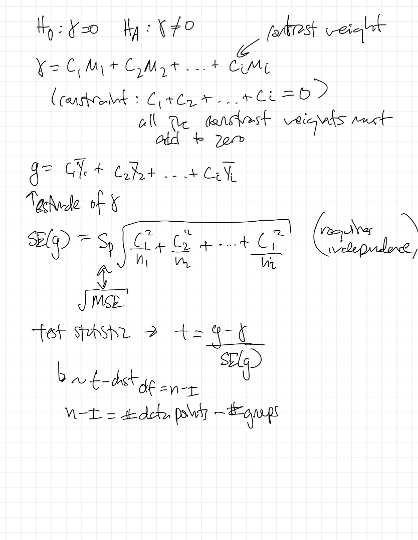 H₀ : γ = 0 H_A : γ ≠ 0 contrast weight
γ = C₁M₁ + C₂M₂ + ... + CᵢMᵢ
(constraint : C₁ + C₂ + ... + Cᵢ = 0)
all the contrast weights must
add to zero
g = C₁Ȳ₁ + C₂Ȳ₂ + ... + CᵢȲᵢ
↑ estimate of γ
SE(g) = Sp √(C₁²/n₁ + C₂²/n₂ + ... + Cᵢ²/nᵢ) (requires independence)
√MSE
test statistic → t = (g - γ)/SE(g)
↳ ~ t-dist df = n-I
n-I = # data points - # groups